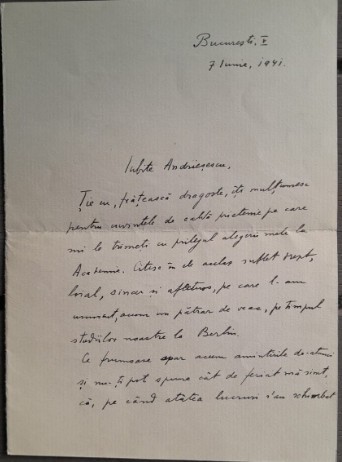 București, V
7 Iunie, 1941.
Iubite Andrieșescu,
Ție cu frățească dragoste, îți mulțumesc
pentru cuvintele de caldă prietenie pe care
mi le trimeți cu prilejul alegerii mele la
Academie. Citesc în ele acelaș suflet drept,
loial, sincer și afectuos, pe care l-am
cunoscut, acum un pătrar de veac, pe timpul
studiilor noastre la Berlin.
Ce frumoase apar acum amintirile de atunci
și nu-ți pot spune cât de fericit mă simt,
că, pe când atâtea lucruri s'au schimbat